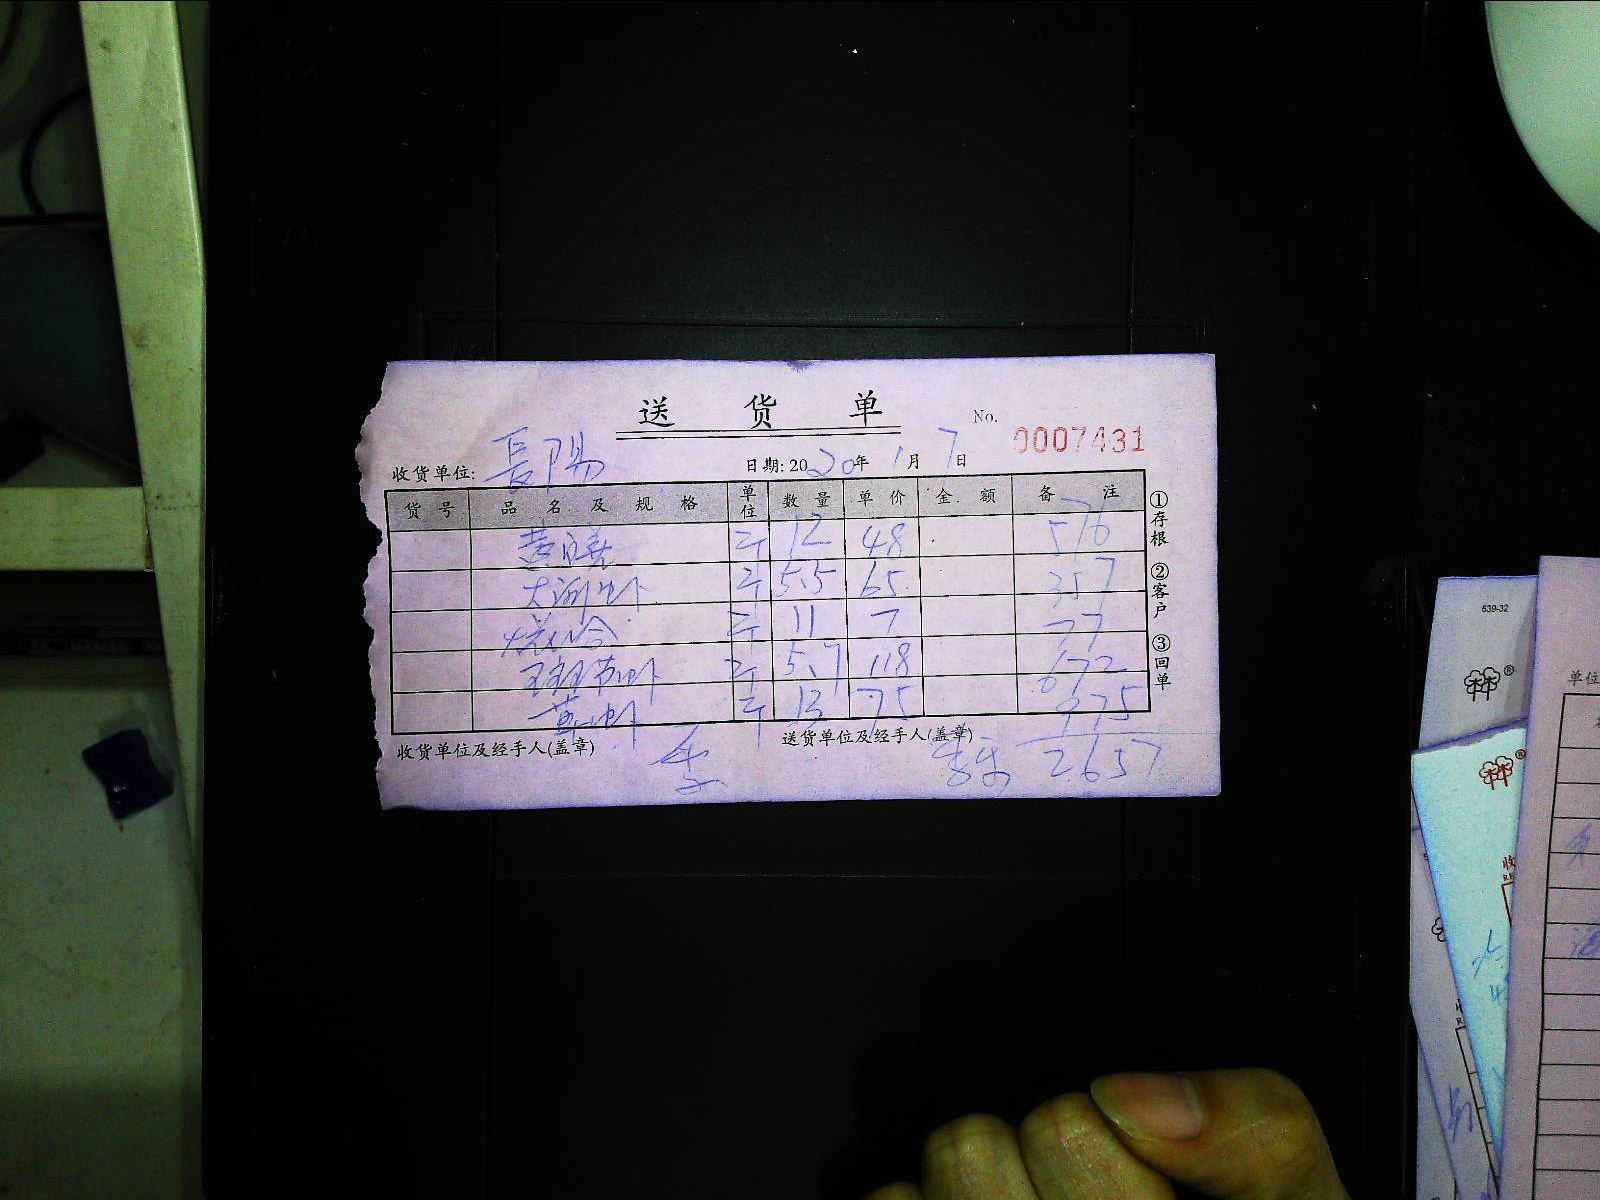 送 货 单
No. 0007431
收货单位: 長陽 日期: 2020年 1月 7日
货 号 品 名 及 规 格 单位 数 量 单 价 金 额 备 注
黄 斤 12 48 576
斤 5.5 65 357
斤 11 7 77
斑节虾 斤 5.7 118 672
斤 13 75 975
收货单位及经手人(盖章) 李 送货单位及经手人(盖章) 2657
①存根 ②客户 ③回单
539-32
单位